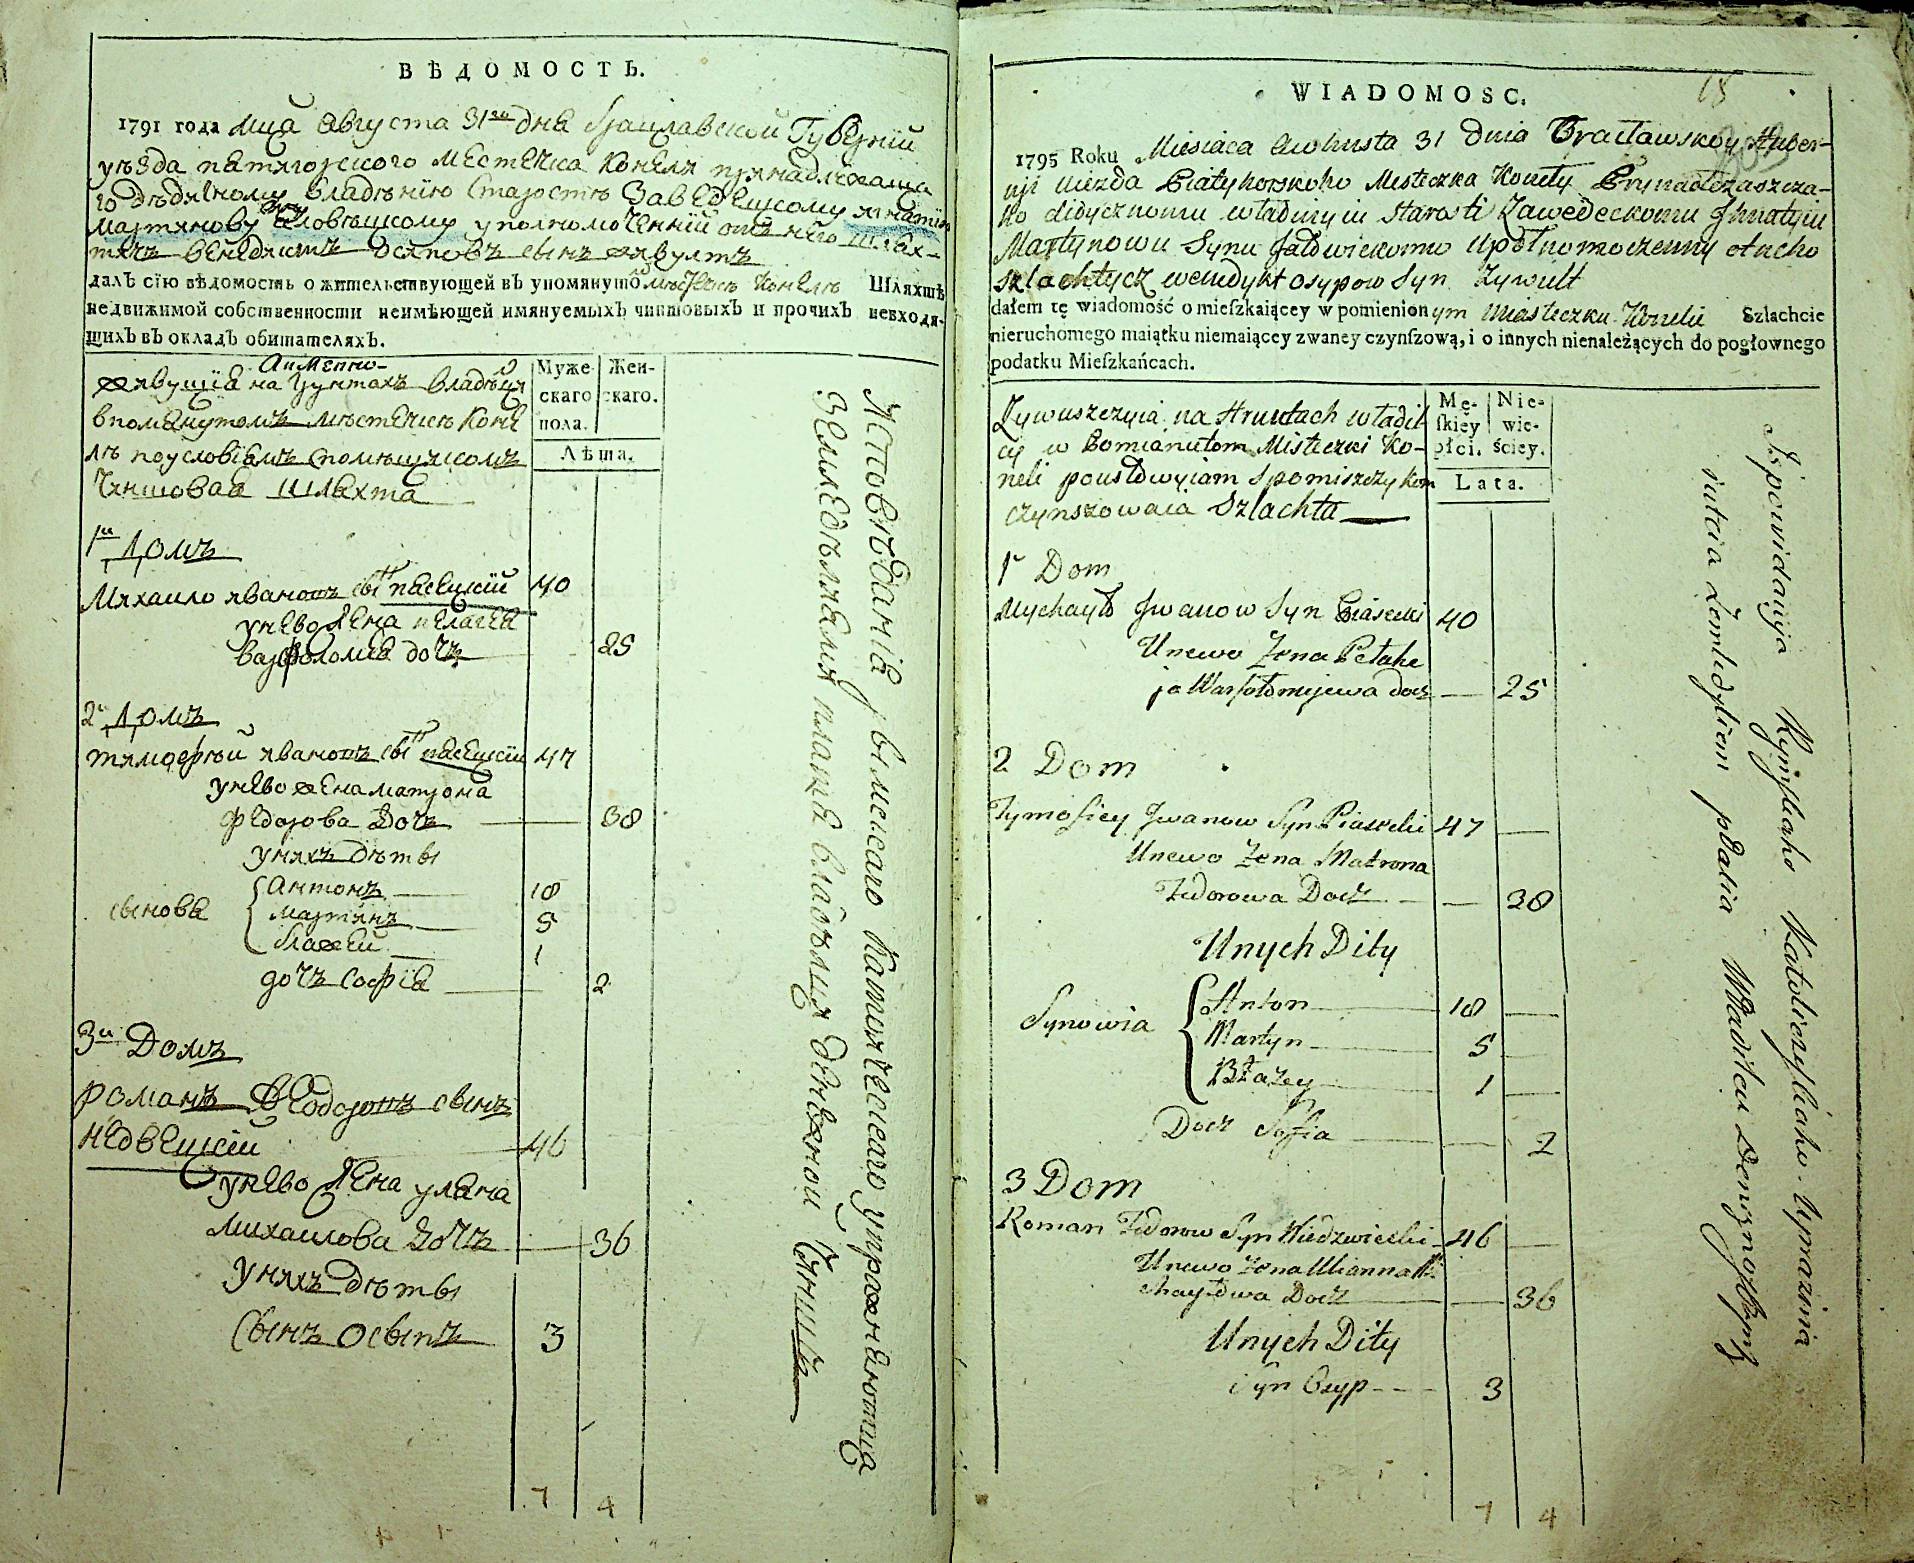 ВѢДОМОСТЬ.
1791 года мца августа 31го дня Брацлавской Губернїи
уѣзда пятигорского местечка Конели принадлежаща
го дѣдичному владѣнїю старостѣ Заведецкому игнатїю
мартинову сну уполномоченнїй отъ него шлях-
тичъ венедиктъ осиповъ сынъ живултъ
далъ сїю вѣдомость о жительствующей въ упомянутомъ местечкѣ Конелѣ Шляхтѣ
недвижимой собственности неимѣющей имянуемыхъ чиншовыхъ и прочихъ невходя-
щихъ въ окладъ обитателяхъ.
Аименно
живущїе на грунтахъ владѣлца
впомянутомъ мѣстечкѣ Коне
лѣ поусловїямъ спомѣщикомъ
Чиншовая шляхта
Муже-
скаго
пола.
Жен-
скаго.
Лѣта.
1й Домъ
Михаило ивановъ снъ пясецкїй 40
унево жена пелагея
варфоломея дочь 25
2й Домъ
тимофѣй ивановъ снъ пясецкїй 47
унево жена матрона
федорова дочь 38
унихъ дѣты
сынове
антонъ 18
мартинъ 5
блажей 1
дочь софїя 2
3й Домъ
романъ феодоровъ сынъ
недвецкїй 46
унево жена уляна
михаилова дочь 36
унихъ дѣты
сынъ осыпъ 3
7 4
Исповѣданїя рымскаго католическаго упражняются
земледѣлиемъ платя владѣлцу денежной чиншъ
WIADOMOSC.
18
1795 Roku Miesiaca Awhusta 31 dnia Bracławskoy Huber-
nji uiezda Piatyhorskoho Mesteczka Koneły Prynadleżaszcza-
ho didycznomu władiniju Starosti Zawedeckomu Ihnatyiu
Martynowu Synu upołnomoczenny otneho
szlachtycz wenedykt osypow Syn Zywult
dałem tę wiadomość o mieſzkaiącey w pomienionym Miasteczku Koneli Szlachcie
nieruchomego maiątku niemaiącey zwaney czynſzową, i o innych nienależących do pogłownego
podatku Mieſzkańcach.
Zywuszczyia na Hruntach władil
cy w Pomianutom Misteczki Ko-
neli pousłowyiam Spomiszczykom
czynszowaia Szlachta
Mę-
ſkiey
płci.
Nie-
wie-
ściey.
Lata.
1 Dom
Mychayło Jwanow Syn Piasecki 40
Unewo Zona Pełahe
ja Warfołomijewa docz 25
2 Dom
Tymofiey Jwanow Syn Piasecki 47
Unewo Zena Matrona
Fedorowa Docz 38
Unych Dity
Synowia
Anton 18
Martyn 5
Błażey 1
Docz Sofia 2
3 Dom
Roman Fedorow Syn Niedzwiecki 46
Unewo Zona Ulianna Mi
chayłowa Docz 36
Unych Dity
Syn Osyp 3
7 4
Jspowidanija Rymſkaho Katoliczeſkaho Upraznia
iutcia Zemledyliem płatia Władilcu